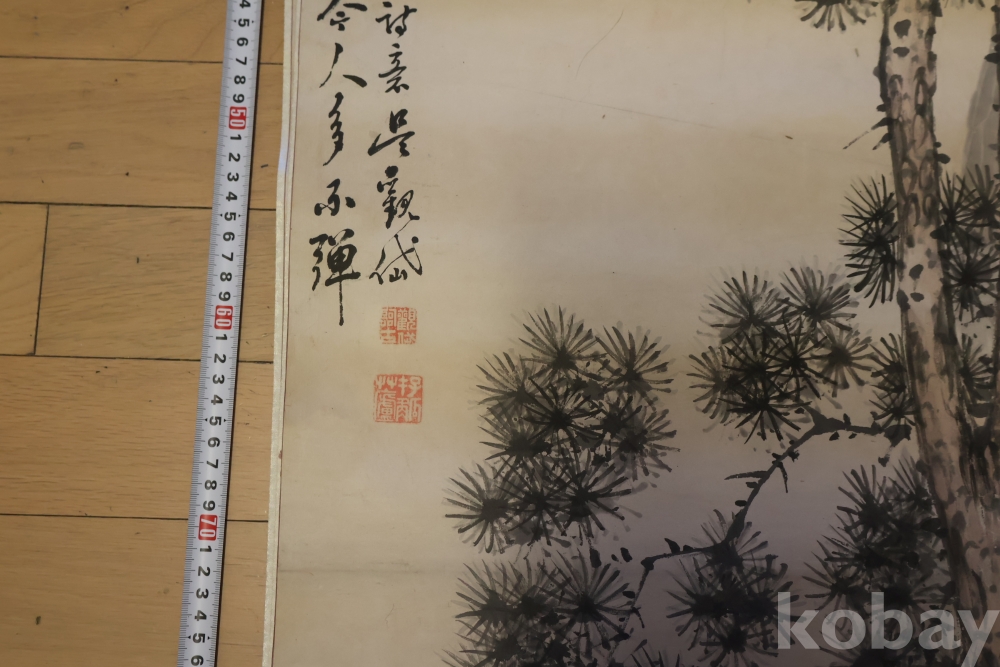 今人多不彈
詩意吳觀岱
4 5 6 7 8 9 50 1 2 3 4 5 6 7 8 9 60 1 2 3 4 5 6 7 8 9 70 1 2 3 4 5 6
kobay